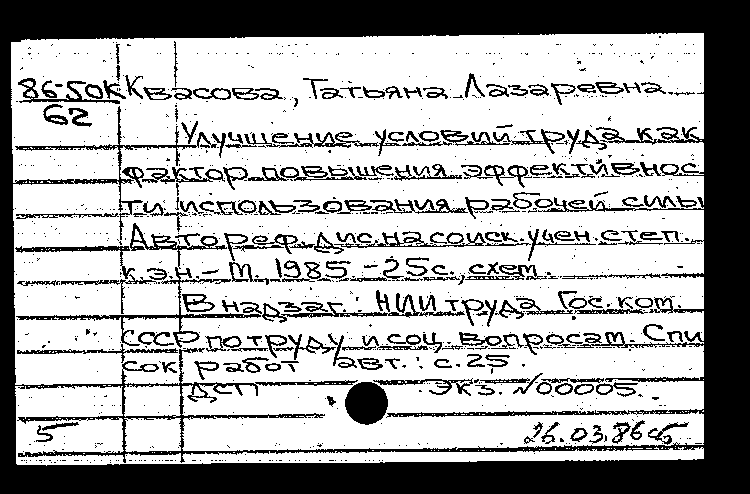 86-50К Квасова, Татьяна Лазаревна
62
Улучшение условий труда как
фактор повышения эффективнос
ти использования рабочей силы
Автореф. дис. на соиск. учен. степ.
к.э.н. - М., 1985 - 25с., схем.
В надзаг.: НИИ труда Гос. ком.
СССР по труду и соц. вопросам. Спи
сок работ авт.: с.25.
ДСП Экз. №00005.
5 26.03.86